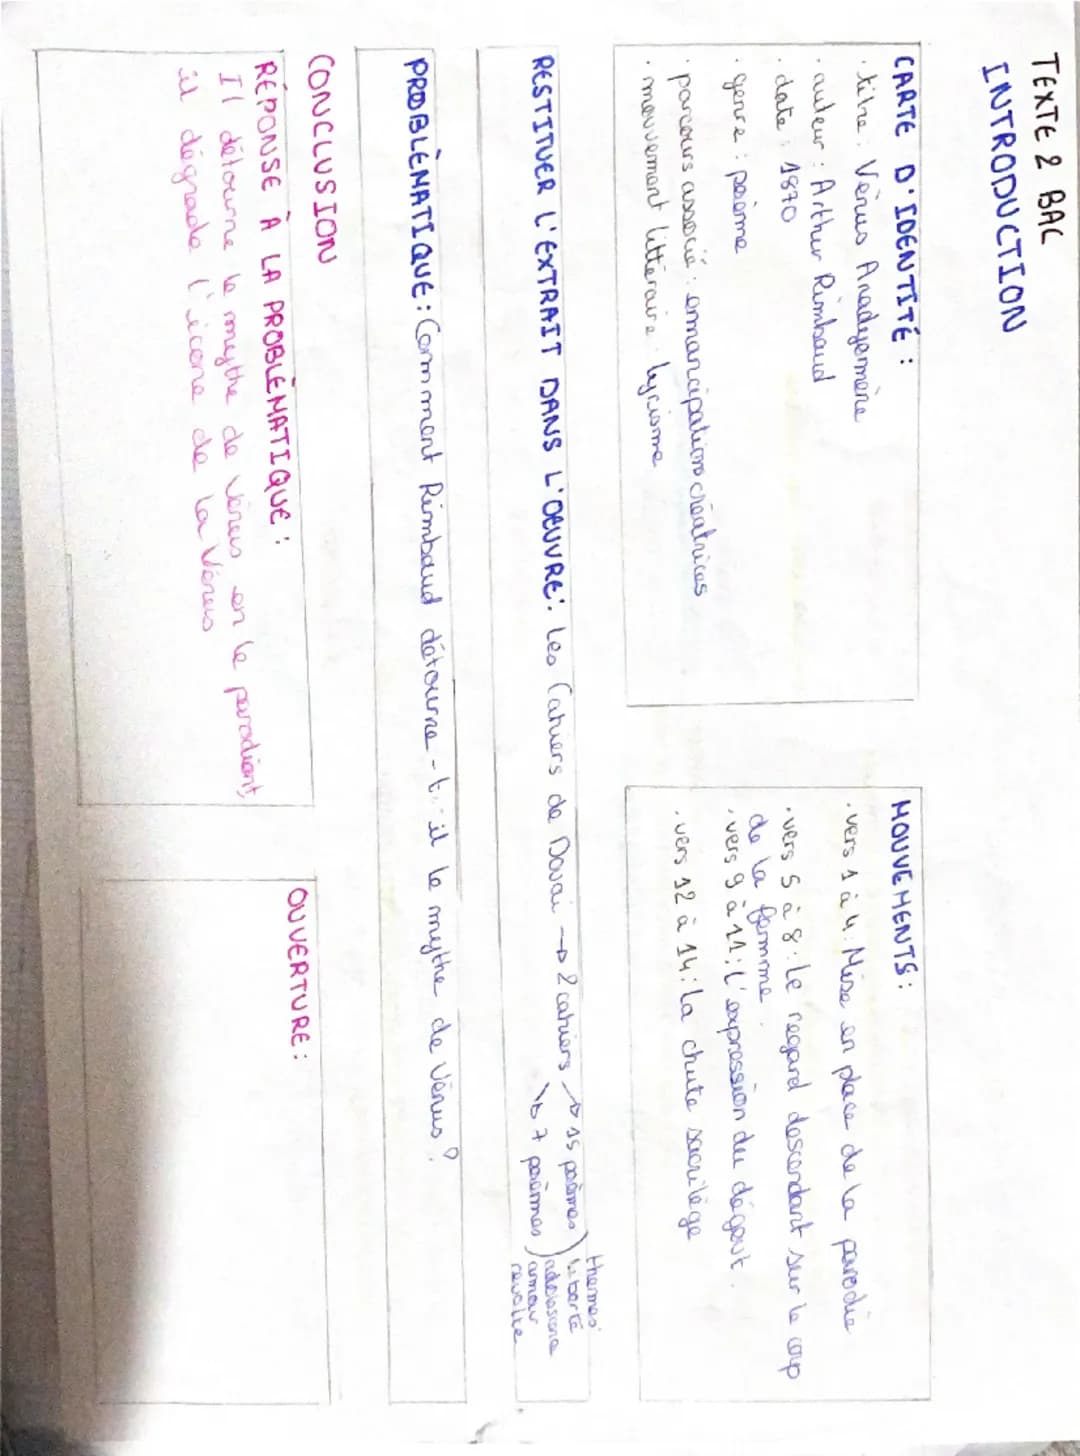 TEXTE 2 BAC
INTRODUCTION
CARTE D'IDENTITÉ :
· titre : Vénus Anadyomène
· auteur : Arthur Rimbaud
· date : 1870
· genre : poème
· parcours associé : émancipations créatrices
· mouvement littéraire : lyrisme
MOUVEMENTS :
· vers 1 à 4 : Mise en place de la parodie
· vers 5 à 8 : le regard descendant sur le corp
de la femme.
· vers 9 à 11 : l'expression du dégout.
· vers 12 à 14 : la chute sacrilège
RESTITUER L'EXTRAIT DANS L'OEUVRE : Les Cahiers de Douai → 2 cahiers → 15 poèmes
↘ 7 poèmes
thèmes
liberté
adolescence
amour
révolte
PROBLÈMATIQUE : Comment Rimbaud détourne-t-il le mythe de Vénus ?
CONCLUSION
RÉPONSE À LA PROBLÈMATIQUE :
Il détourne le mythe de Vénus, en le parodiant,
il dégrade l'icone de la Vénus
OUVERTURE :